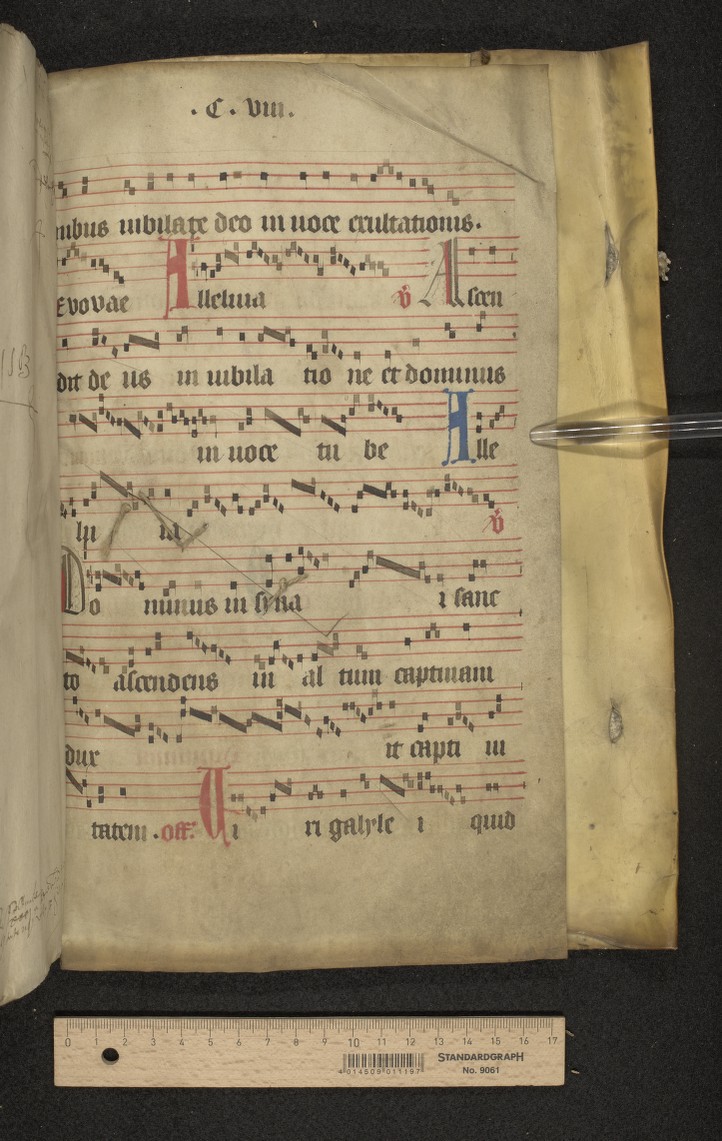 . C . viii .
nibus iubilate deo in uoce exultationis .
Evovae Alleluia v Ascen
dit de us in iubila tio ne et dominus
in uoce tu be Alle
lu ia v
Do minus in syna i sanc
to ascendens in al tum captiuam
dux it capti ui
tatem . off. Ui ri galyle i quid
0 1 2 3 4 5 6 7 8 9 10 11 12 13 14 15 16 17
4 014509 011197
STANDARDGRAPH
No. 9061